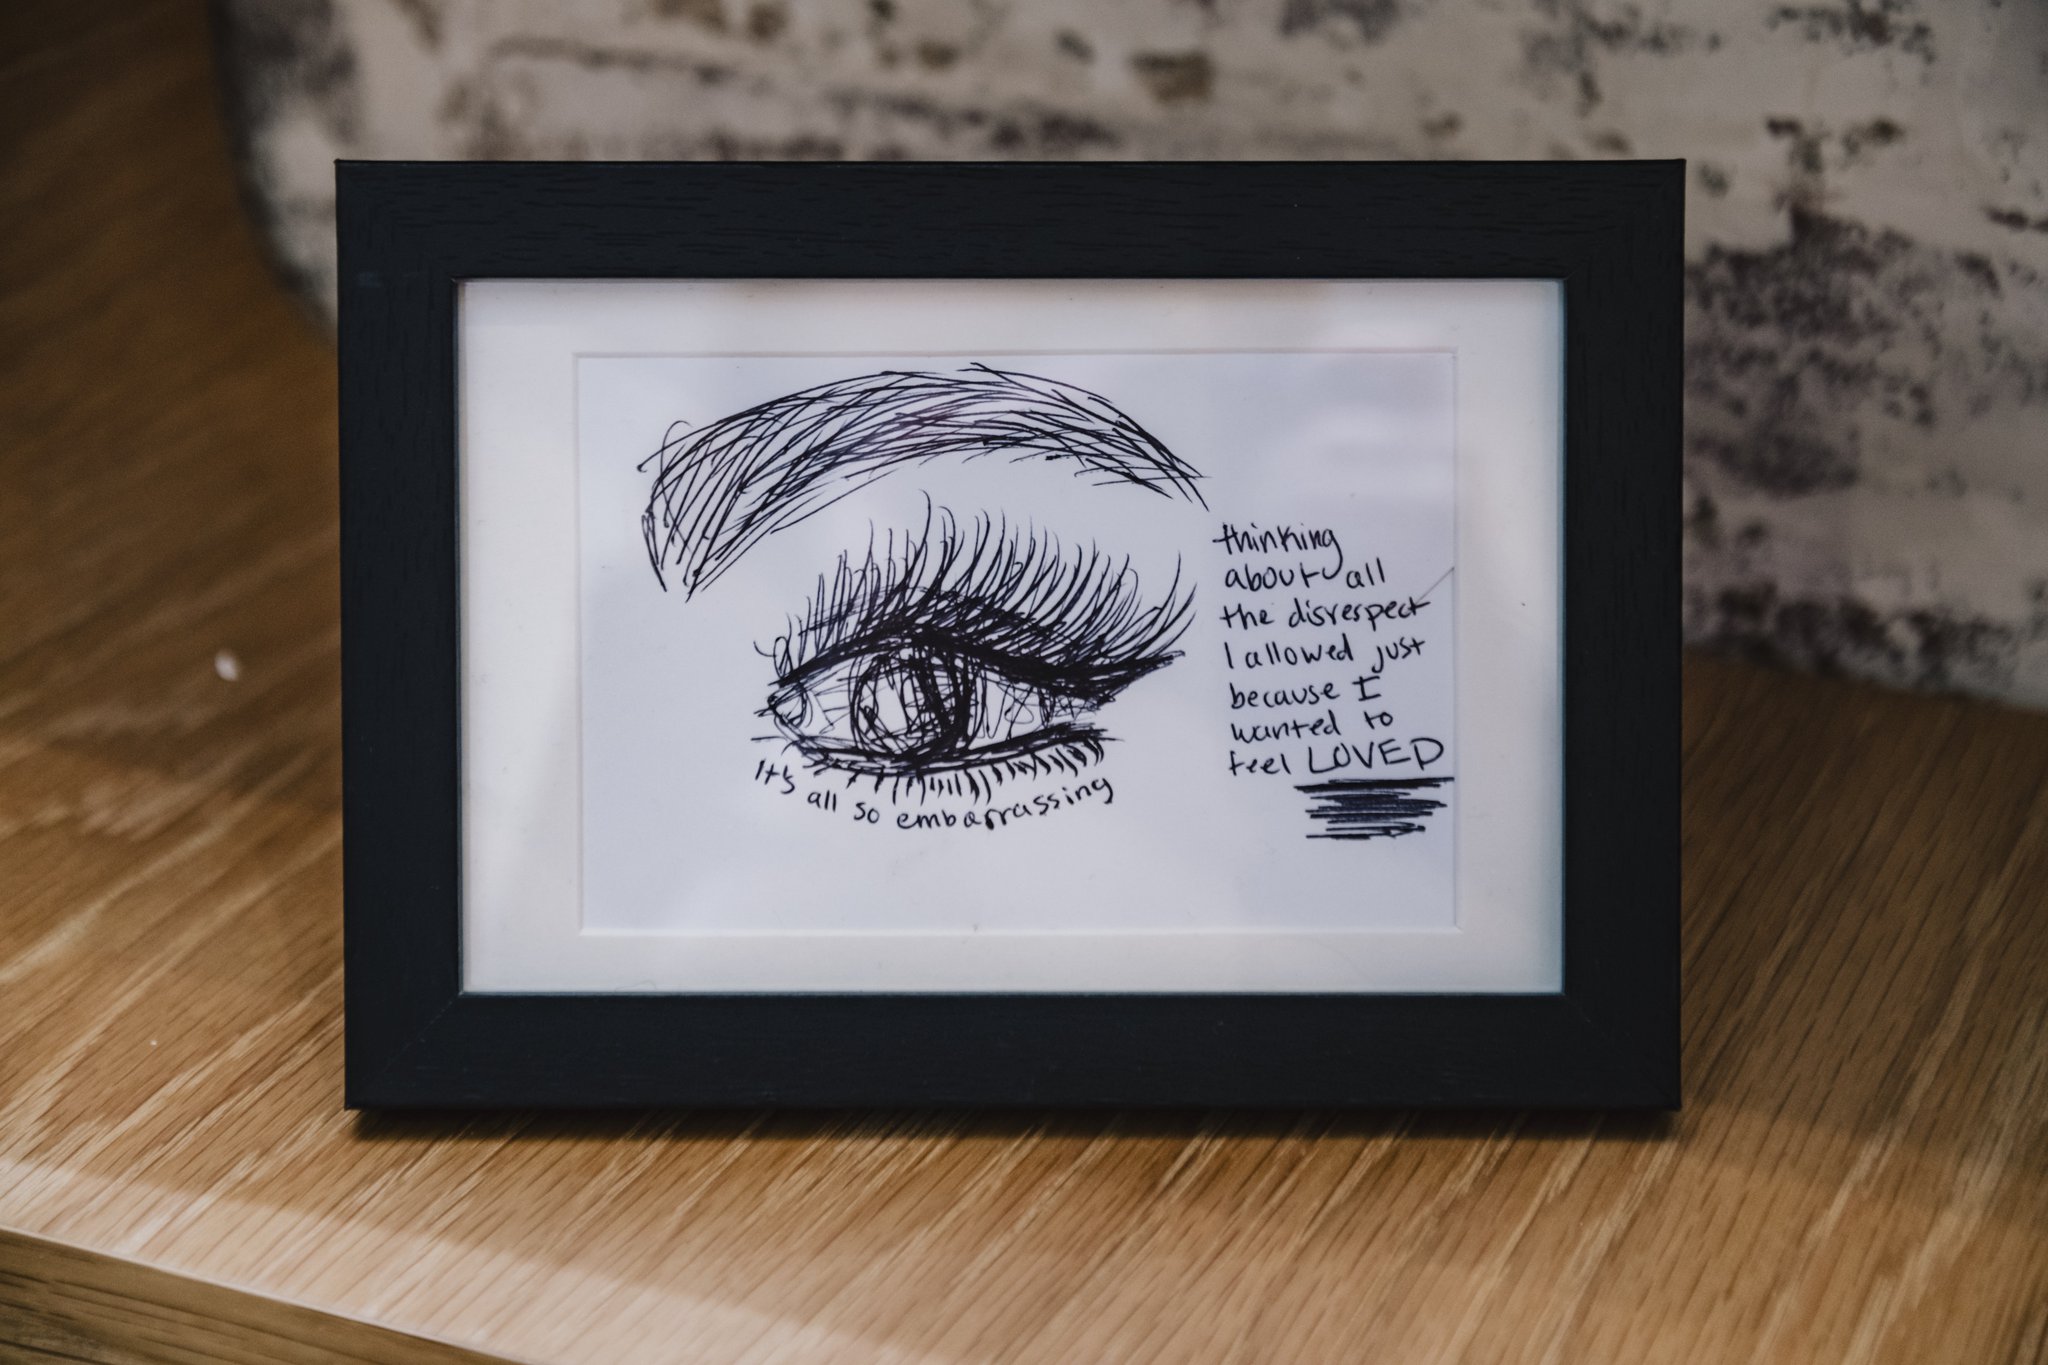 thinking
about all
the disrespect
I allowed just
because I
wanted to
feel LOVED
It's all so embarrassing